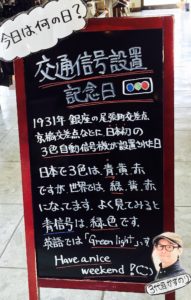 今日は何の日?
交通信号設置
記念日
1931年 銀座の尾張町交差点
京橋交差点などに 日本初の
3色自動信号機が設置された日
日本で3色は、青、黄、赤
ですが世界では、緑、黄、赤
になってます。よく見てみると
青信号は、緑色です。
英語では「Green light」です
Have a nice
weekend